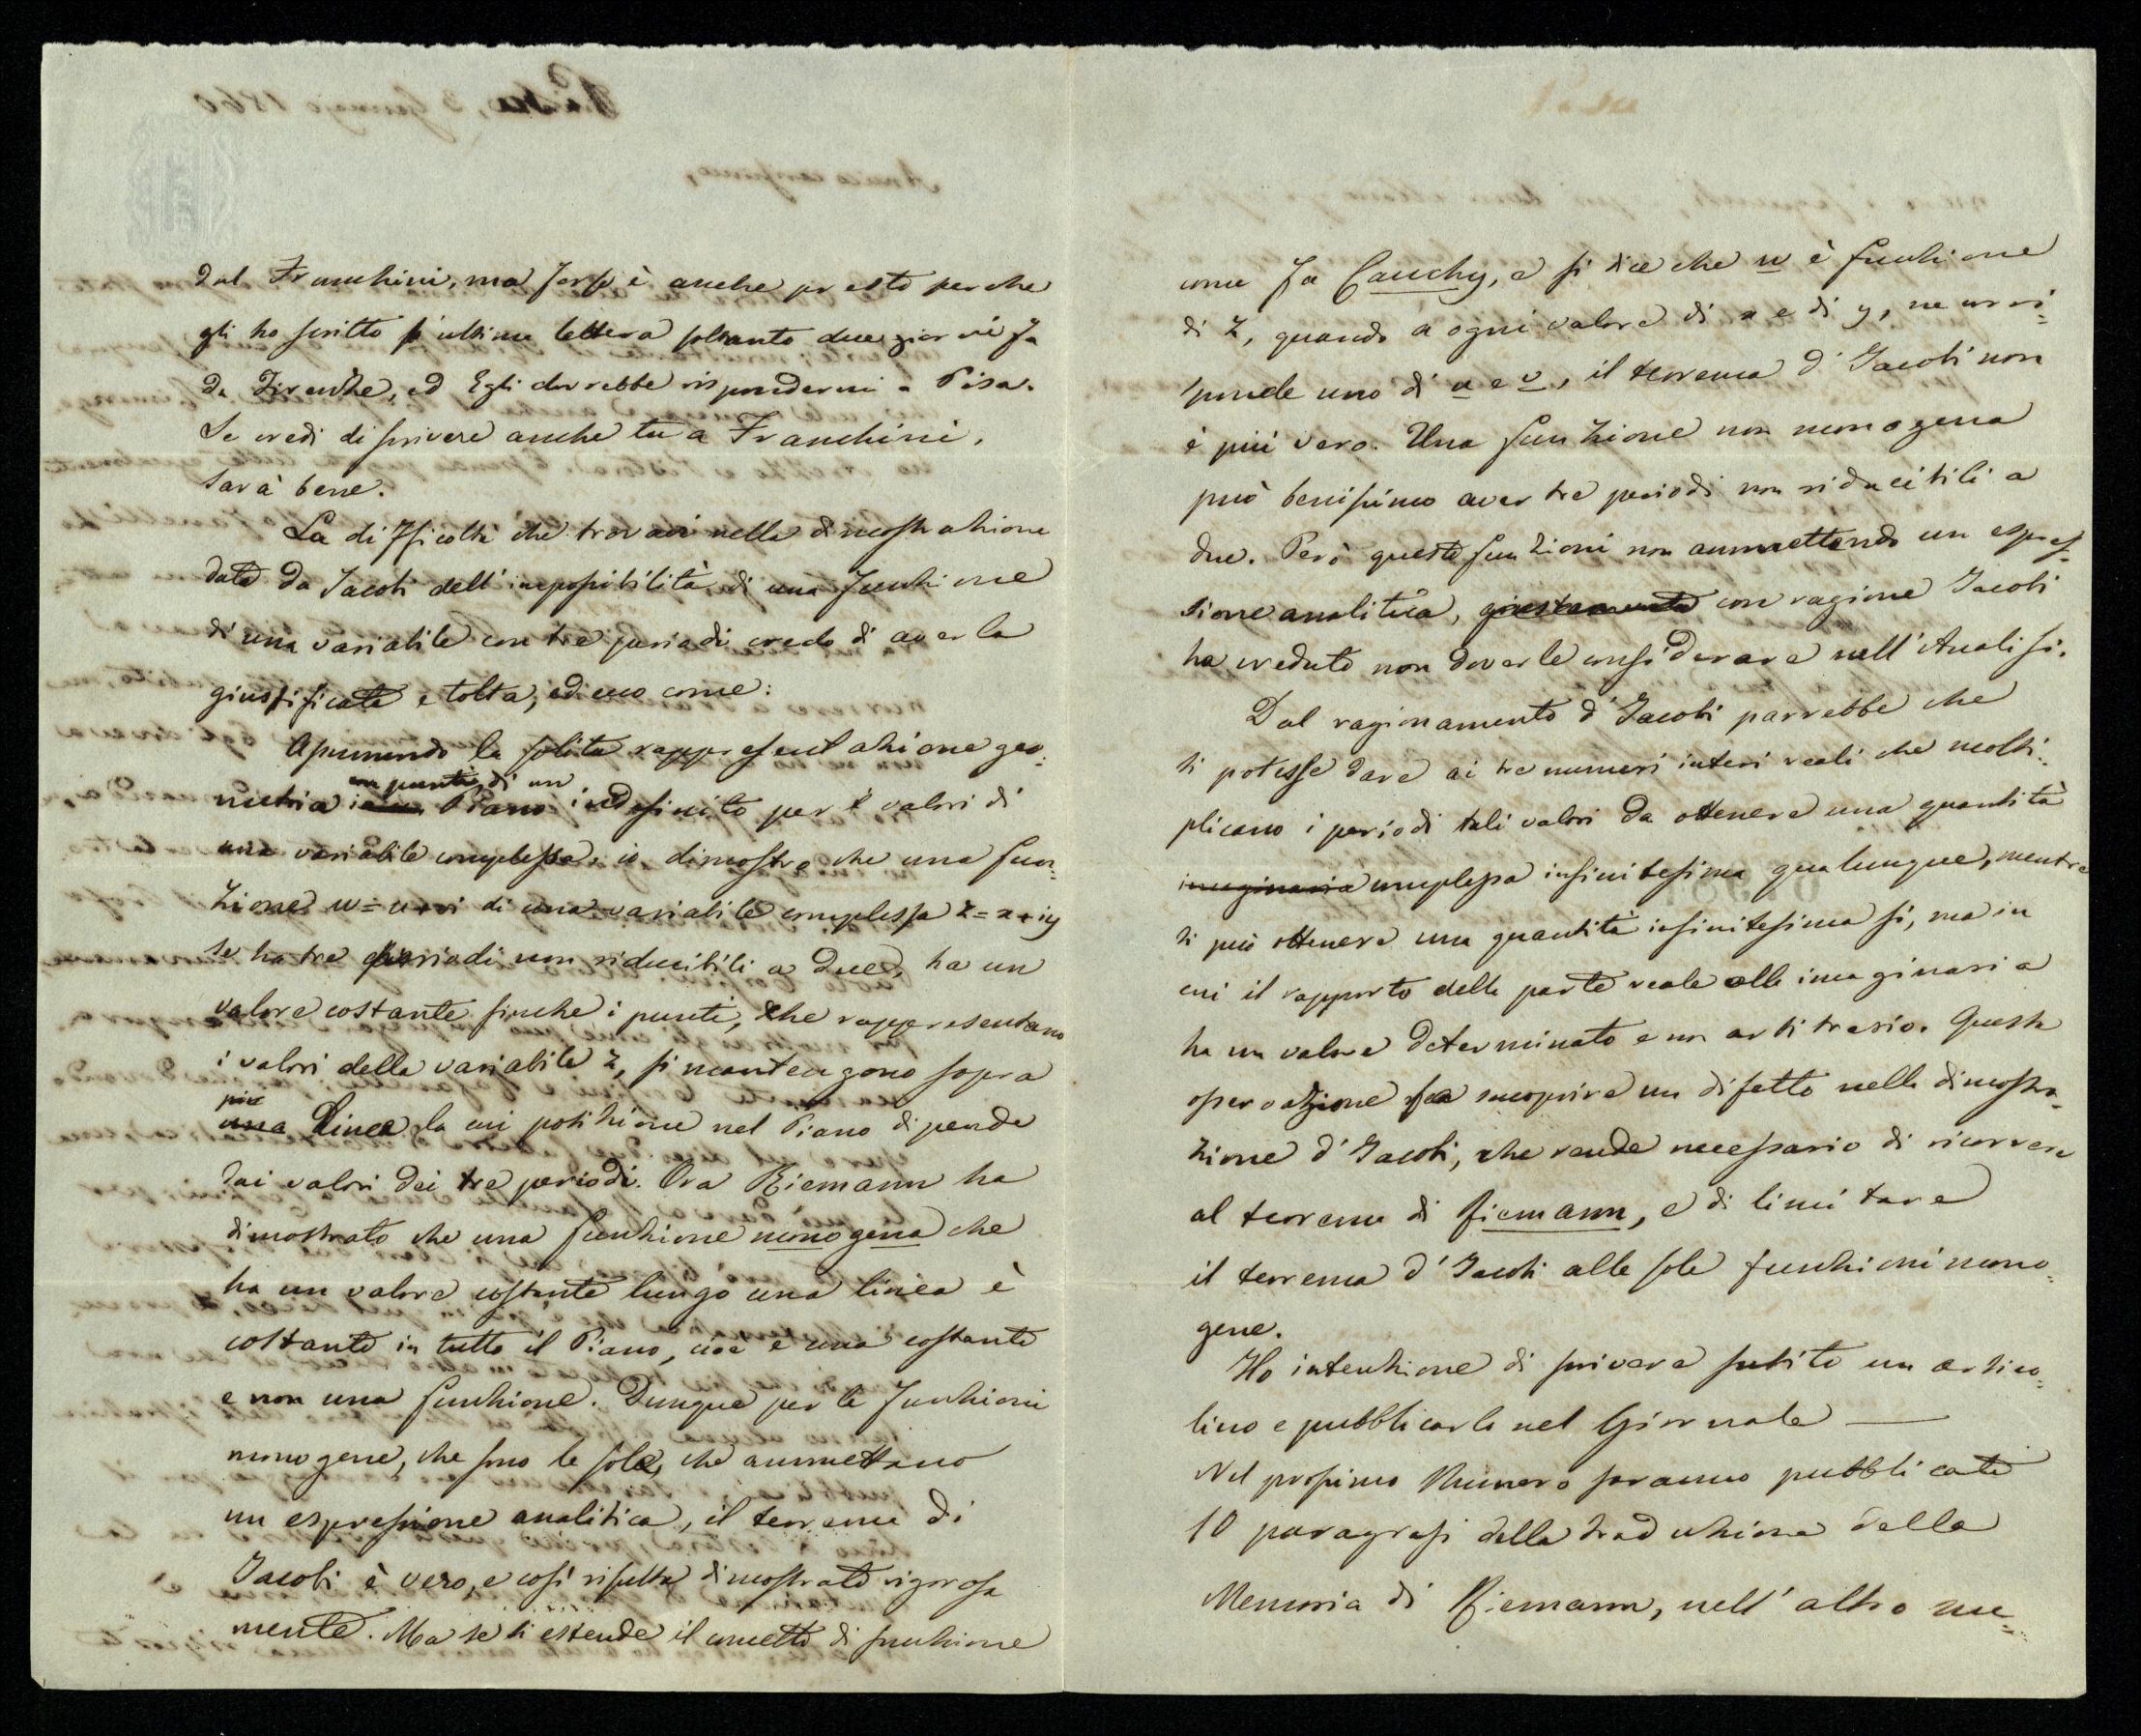 dal Franchini, ma forse è anche presto perche
gli ho scritto l'ultima lettera soltanto due giorni fa
da Firenze, ed Egli dovrebbe rispondermi a Pisa.
Se credi di scrivere anche tu a Franchini,
sarà bene.
La difficoltà che trovavi nella dimostrazione
data da Jacobi dell'impossibilità di una funzione
di una variabile con tre periodi credo di averla
giustificata e tolta, ed ecco come:
Assumendo la solita rappresentazione geo=
metrica in punti, di un Piano indefinito per i valori di
una variabile complessa, io dimostro che una fun=
zione w=u+vi di una variabile complessa z=x+iy
se ha tre periodi non riducibili a due, ha un
valore costante finche i punti, che rappresentano
i valori della variabile z, si mantengono sopra
una Linea la cui posizione nel Piano dipende
dai valori dei tre periodi. Ora Riemann ha
dimostrato che una funzione monogena che
ha un valore costante lungo una linea è
costante in tutto il Piano, cioè è una costante
e non una funzione. Dunque per le funzioni
monogene, che sono le sole, che ammettano
un espressione analitica, il teorema di
Jacobi è vero, e così risulta dimostrato rigorosa
mente. Ma se si estende il concetto di funzione
come fa Cauchy, e si dice che w è funzione
di z, quando a ogni valore di x e di y, ne corri=
sponde uno di u e v, il teorema d'Jacobi non
è più vero. Una funzione non monogena
può benissimo aver tre periodi non riducibili a
due. Però queste funzioni non ammettendo un espres=
sione analitica, giustamente con ragione Jacobi
ha creduto non doverle considerare nell'Analisi.
Dal ragionamento d'Jacobi parrebbe che
si potesse dare ai tre numeri interi reali che molti=
plicano i periodi tali valori da ottenere una quantità
imaginaria complessa infinitesima qualunque, mentre
si può ottenere una quantità infinitesima si, ma in
cui il rapporto della parte reale alla imaginaria
ha un valore determinato e non arbitrario. Questa
osservazione fa scoprire un difetto nella dimostra=
zione d'Jacobi, che rende necessario di ricorrere
al teorema di Riemann, e di limitare
il teorema d'Jacobi alle sole funzioni mono=
gene.
Ho intenzione di scrivere subito un artico=
lino e pubblicarlo nel Giornale —
Nel prossimo Numero saranno pubblicati
10 paragrafi della traduzione della
Memoria di Riemann, nell'altro nu=